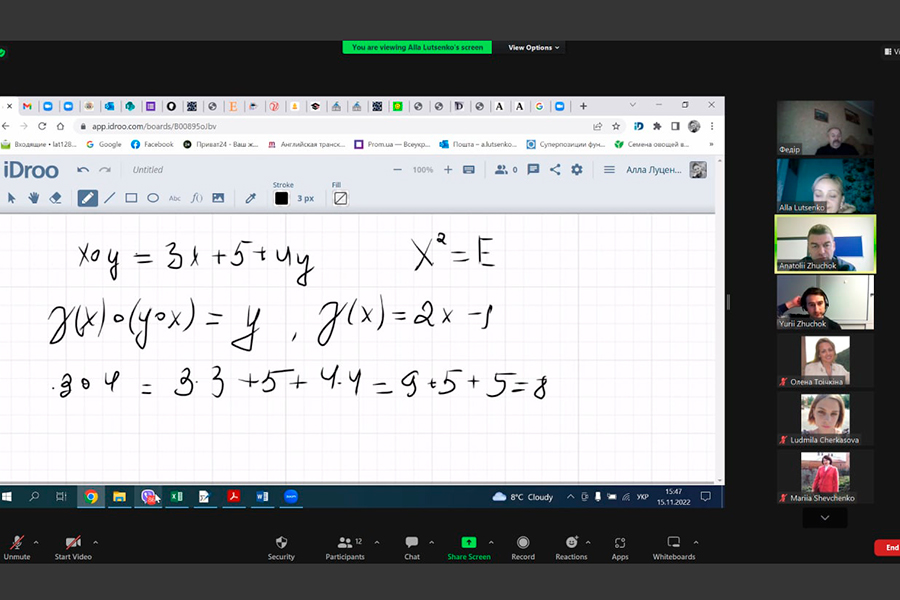 You are viewing Alla Lutsenko's screen
View Options
app.idroo.com/boards/B00895oJbv
Входящие • lat128...
Google
Facebook
Приват24 - Ваш ж...
Английская транск...
Prom.ua — Всеукр...
Пошта – a.lutsenko...
Суперпозиции фун...
Семена овощей в...
iDroo
Untitled
100%
0
Алла Луцен...
Abc
f()
Stroke
3 px
Fill
x∘y = 3x+5+4y
X² = E
γ(x)∘(y∘x) = y , γ(x) = 2x -1
3∘4 = 3·3 +5+ 4·4 = 9+5+5=8
8°C Cloudy
УКР
15:47
15.11.2022
Федір
Alla Lutsenko
Anatolii Zhuchok
Yurii Zhuchok
Олена Тоічкіна
Ludmila Cherkasova
Mariia Shevchenko
Unmute
Start Video
Security
Participants
12
Chat
Share Screen
Record
Reactions
Apps
Whiteboards
End